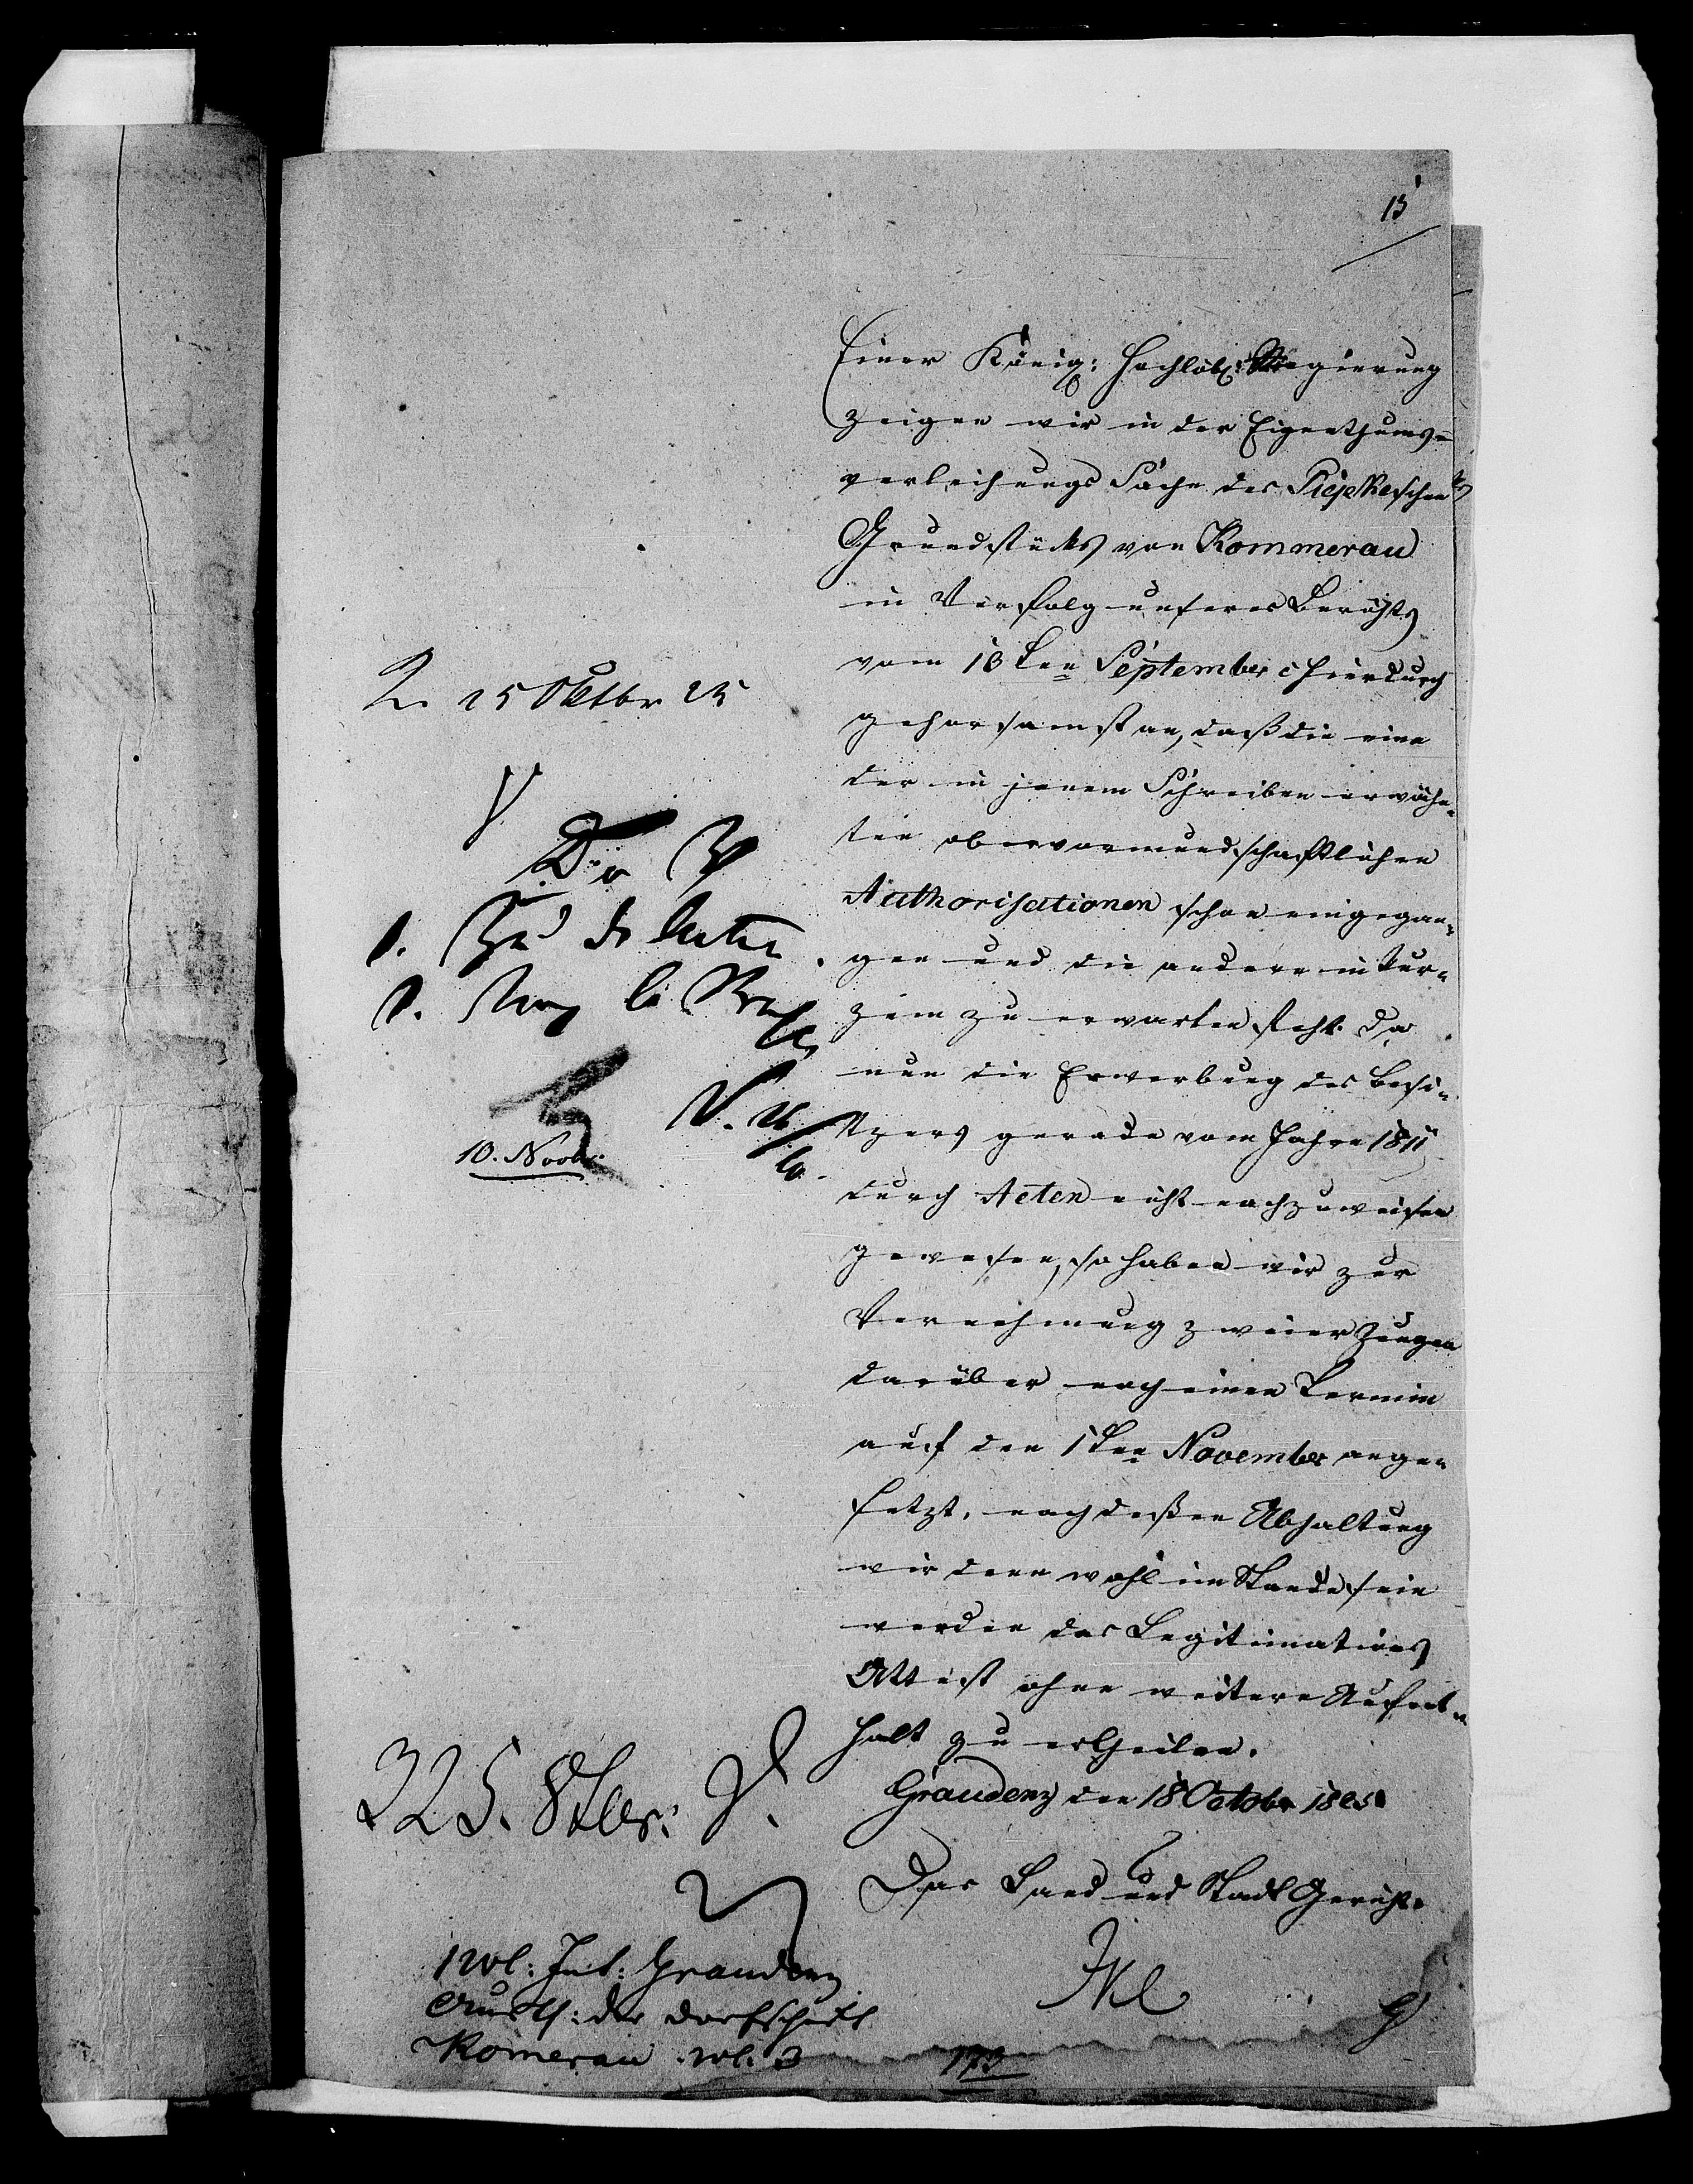 15
Einer Königl: Hochlöbl: Regierung
zeigen wir in der Eigenthums-
verleihungs Sache des Piesckeschen
Grundstücks von Kommerau
in Verfolg unseres Berichts
vom 13ten September c hierdurch
gehorsamst an, daß die eine
der in jenem Schreiben erwähn-
ten obervormundschaftlichen
Authorisationen schon eingegan-
gen und die andere in Kur-
zem zu erwarten steht. Da
nun die Erwerbung des Besi-
tzers gerade vom Jahre 1811
durch Acten nicht nachzuweisen
gewesen, so haben wir zur
Vernehmung zweier Zeugen
darüber noch einen Termin
auf den 1ten November ange-
setzt, nach deßen Abhaltung
wir denn wohl im Stande sein
werden das Legitimations
Attest ohne weitern Aufent-
halt zu ertheilen.
Graudenz den 18 October 1825
Das Land und Stadt Gericht.
25 Oktbr 25
10. Novb.
325. 8tbr:
Int: Graudenz
der Dorfschaft
Komerau
173